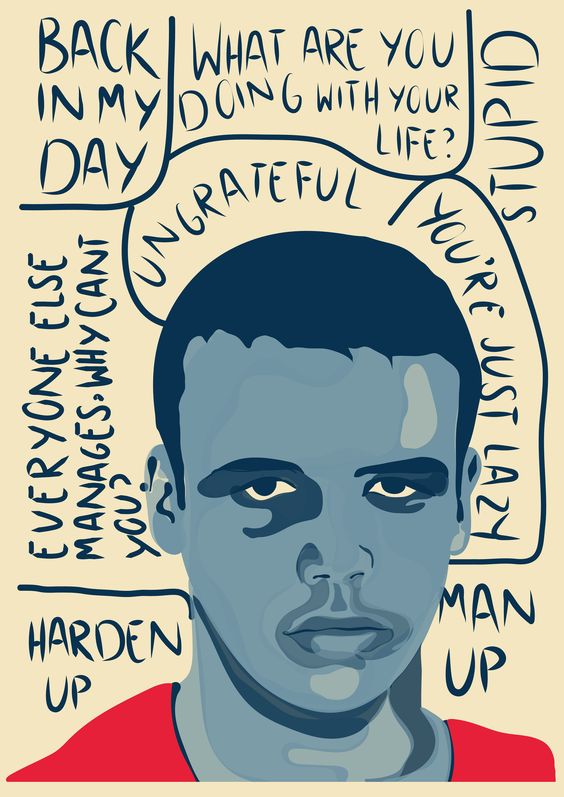 BACK
IN MY
DAY
WHAT ARE YOU
DOING WITH YOUR
LIFE?
STUPID
UNGRATEFUL
YOU'RE JUST LAZY
EVERYONE ELSE
MANAGES, WHY CANT
YOU?
HARDEN
UP
MAN
UP